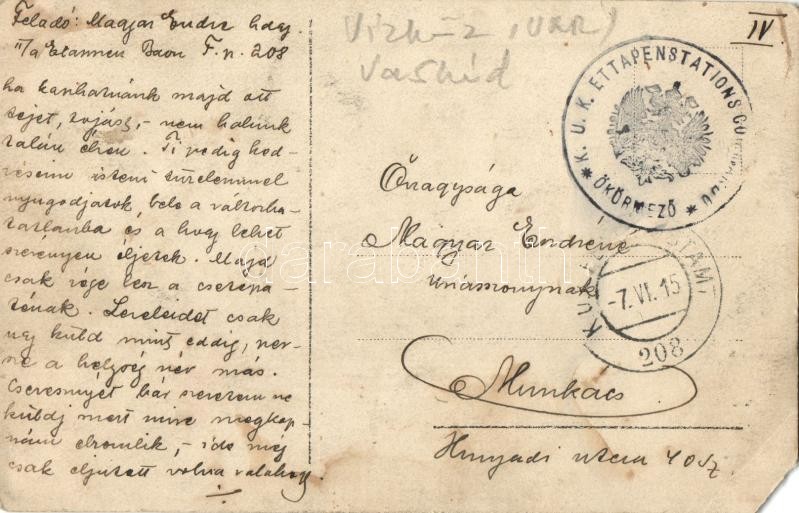 Feladó: Magyar Endre hdgy.
II/a Etappen Baon F. p. 208
ha kaphatnánk majd ott
tejet, tojást, - nem halunk
talán éhen. Ti pedig ked-
veseim isteni türelemmel
nyugodjatok bele a változha-
tatlanba és a hogy lehet
szerényen éljetek. Majd
csak vége lesz a csetepa-
ténak. Leveleidet csak
úgy küld mint eddig, per-
sze a helység név más.
Cseresznyét bár szeretem ne
küldj mert mire megkap-
nám elromlik, - ide még
csak eljutott volna valahogy
Vizköz (UKR)
Vashíd
IV.
* K. U. K. ETTAPENSTATIONSCOMMANDO *
ÖKÖRMEZŐ
Őnagysága
Magyar Endréné
úriasszonynak
Munkács
Hunyadi utca 40 sz.
-7.VI.15
208
darabanth